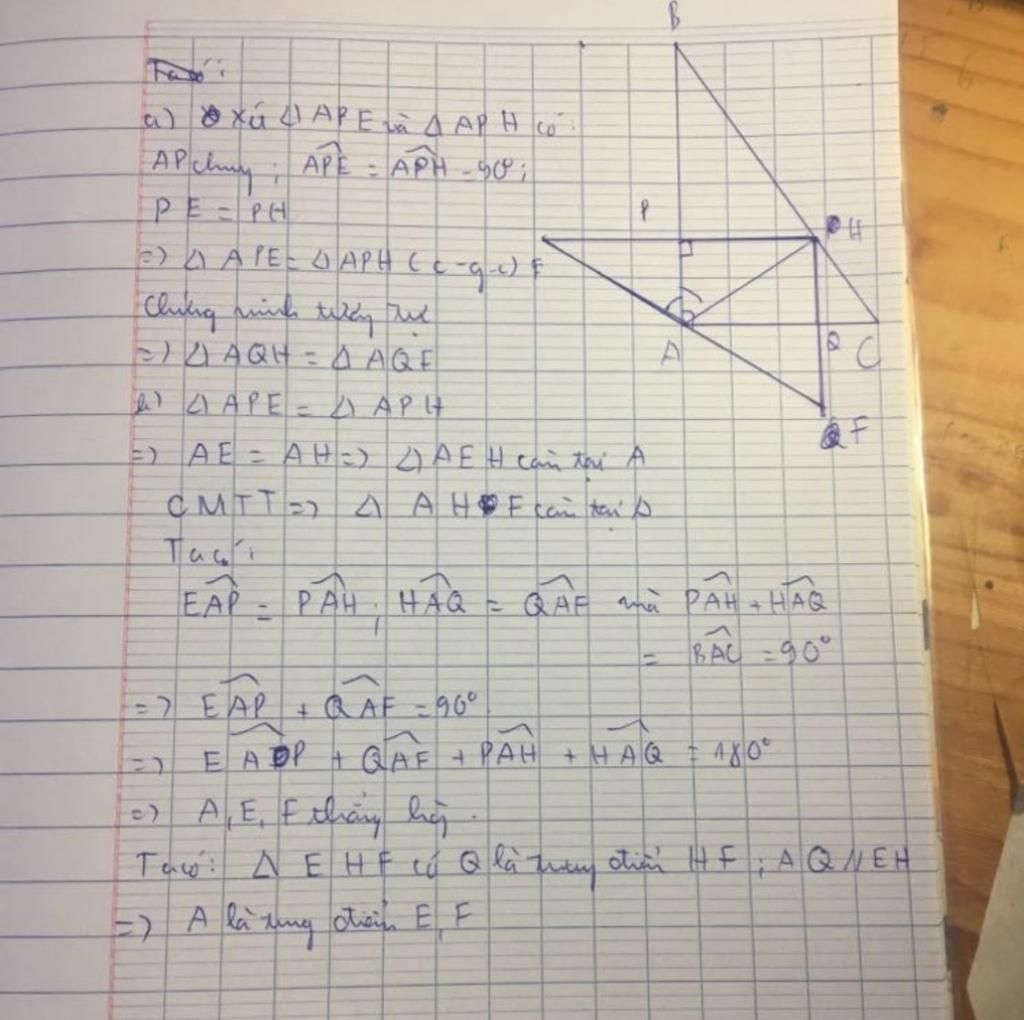 Ta có:
a) Xét Δ APE và Δ APH có:
AP chung; APE = APH = 90°;
PE = PH
=> Δ APE = Δ APH (c-g-c)
Chứng minh tương tự
=> Δ AQH = Δ AQF
b) Δ APE = Δ APH
=> AE = AH => Δ AEH cân tại A
CMTT => Δ AHF cân tại A
Ta có:
EAP = PAH; HAQ = QAF mà PAH + HAQ
= BAC = 90°
=> EAP + QAF = 90°
=> EAP + QAF + PAH + HAQ = 180°
=> A, E, F thẳng hàng.
Ta có: Δ EHF có Q là trung điểm HF; AQ // EH
=> A là trung điểm E, F
B
P
H
E
A
Q
C
F